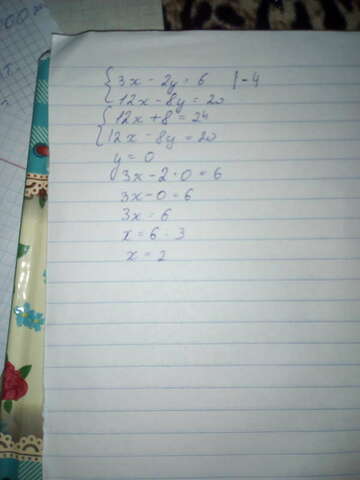 {3x - 2y = 6 | -4
12x - 8y = 20
{12x + 8 = 24
12x - 8y = 20
y = 0
3x - 2 · 0 = 6
3x - 0 = 6
3x = 6
x = 6 : 3
x = 2